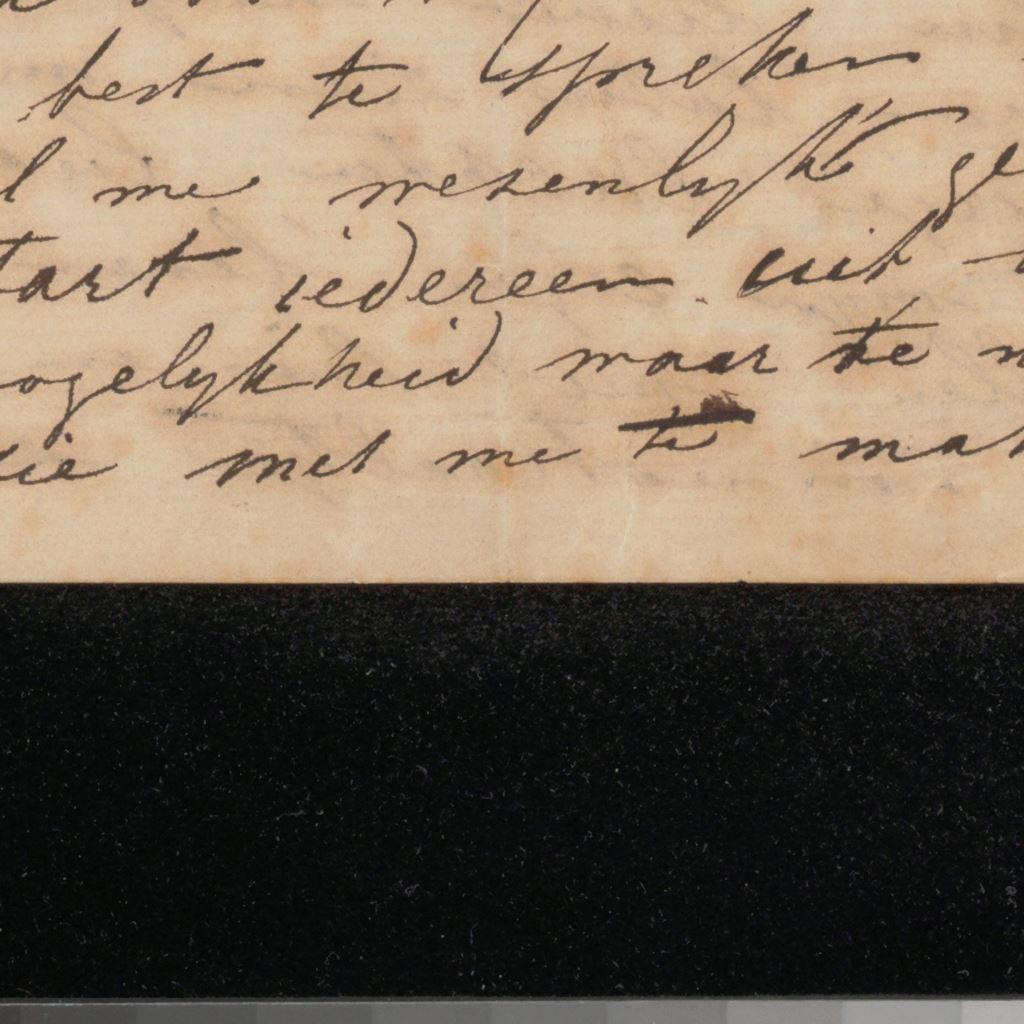 best te spreken
me wesenlyk ge
tart iedereen uit
ogelykheid waar te
die met me te mak